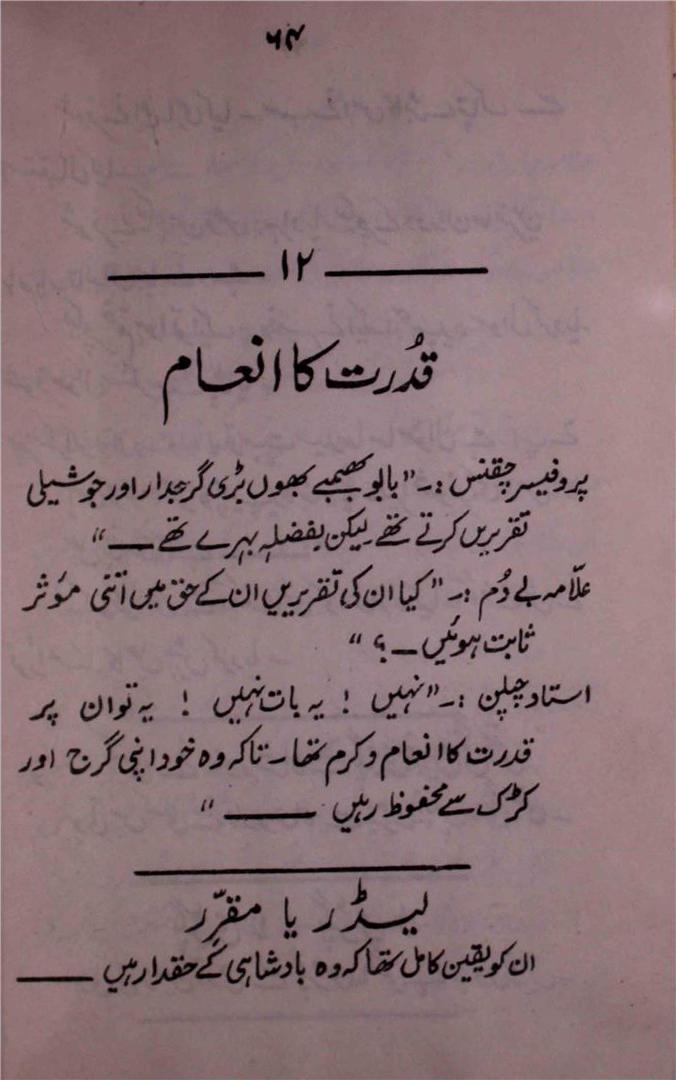 ۶۴
۱۲
قُدرت کا انعام
پروفیسر چقنس :۔ "بابو بھمبے بھوں بڑی گرجدار اور جوشیلی
تقریریں کرتے تھے لیکن بفضلہٖ بہرے تھے ـــ"
علّامہ بے دُم :۔ "کیا ان کی تقریریں ان کے حق میں اتنی موٴثر
ثابت ہوئیں ـــ ؟"
استاد چپلن :۔ "نہیں ! یہ بات نہیں ! یہ تو ان پر
قدرت کا انعام و کرم تھا ۔ تاکہ وہ خود اپنی گرج اور
کڑک سے محفوظ رہیں ـــــ"
لیڈر یا مقرِّر
ان کو یقین کامل تھا کہ وہ بادشاہی کے حقدار ہیں ـــــ